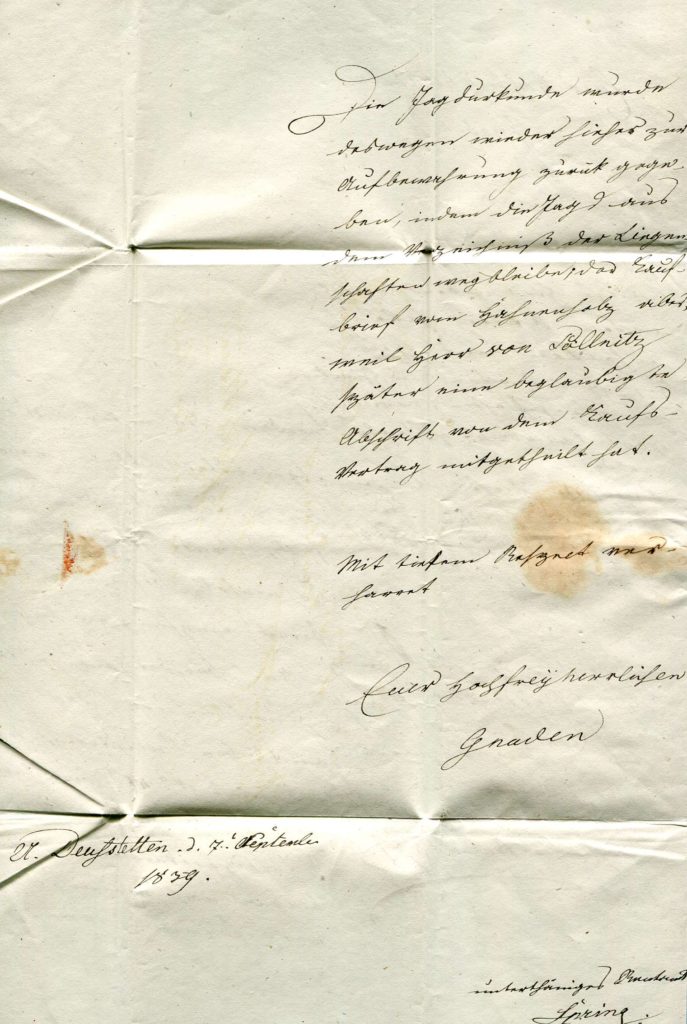 Die Jagdurkunde wurde
deswegen wieder hieher zur
Aufbewahrung zurück gege-
ben, indem die Jagd aus
dem Verzeichniß der Liegen-
schaften wegbleibe, der Kauf-
brief vom Hahnenholz aber,
weil Herr von Pöllnitz
später eine beglaubigte
Abschrift von dem Kaufs-
Vertrag mitgetheilt hat.
Mit tiefem Respect ver-
harret
Euer Hochfreyherrlichen
Gnaden
U. Deufstetten d. 7. September
1839.
unterthäniges Rentamt